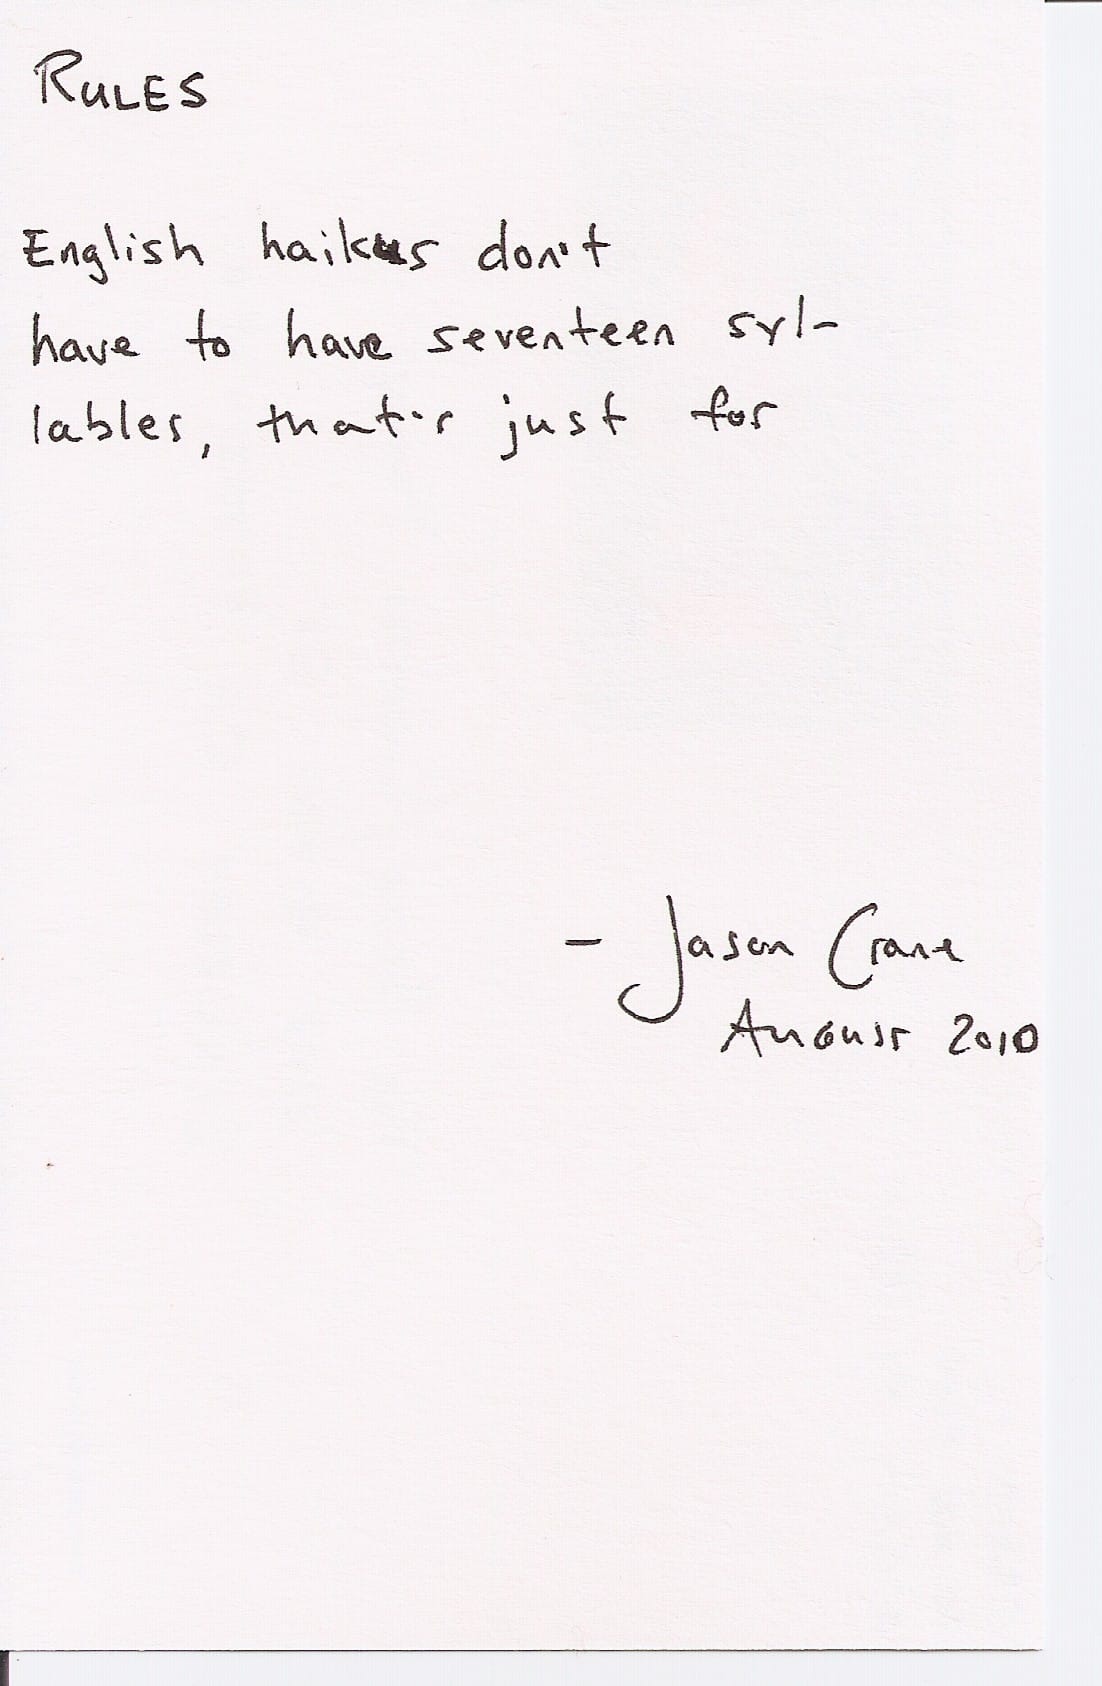 RULES
English haikus don't
have to have seventeen syl-
lables, that's just for
- Jason Crane
August 2010